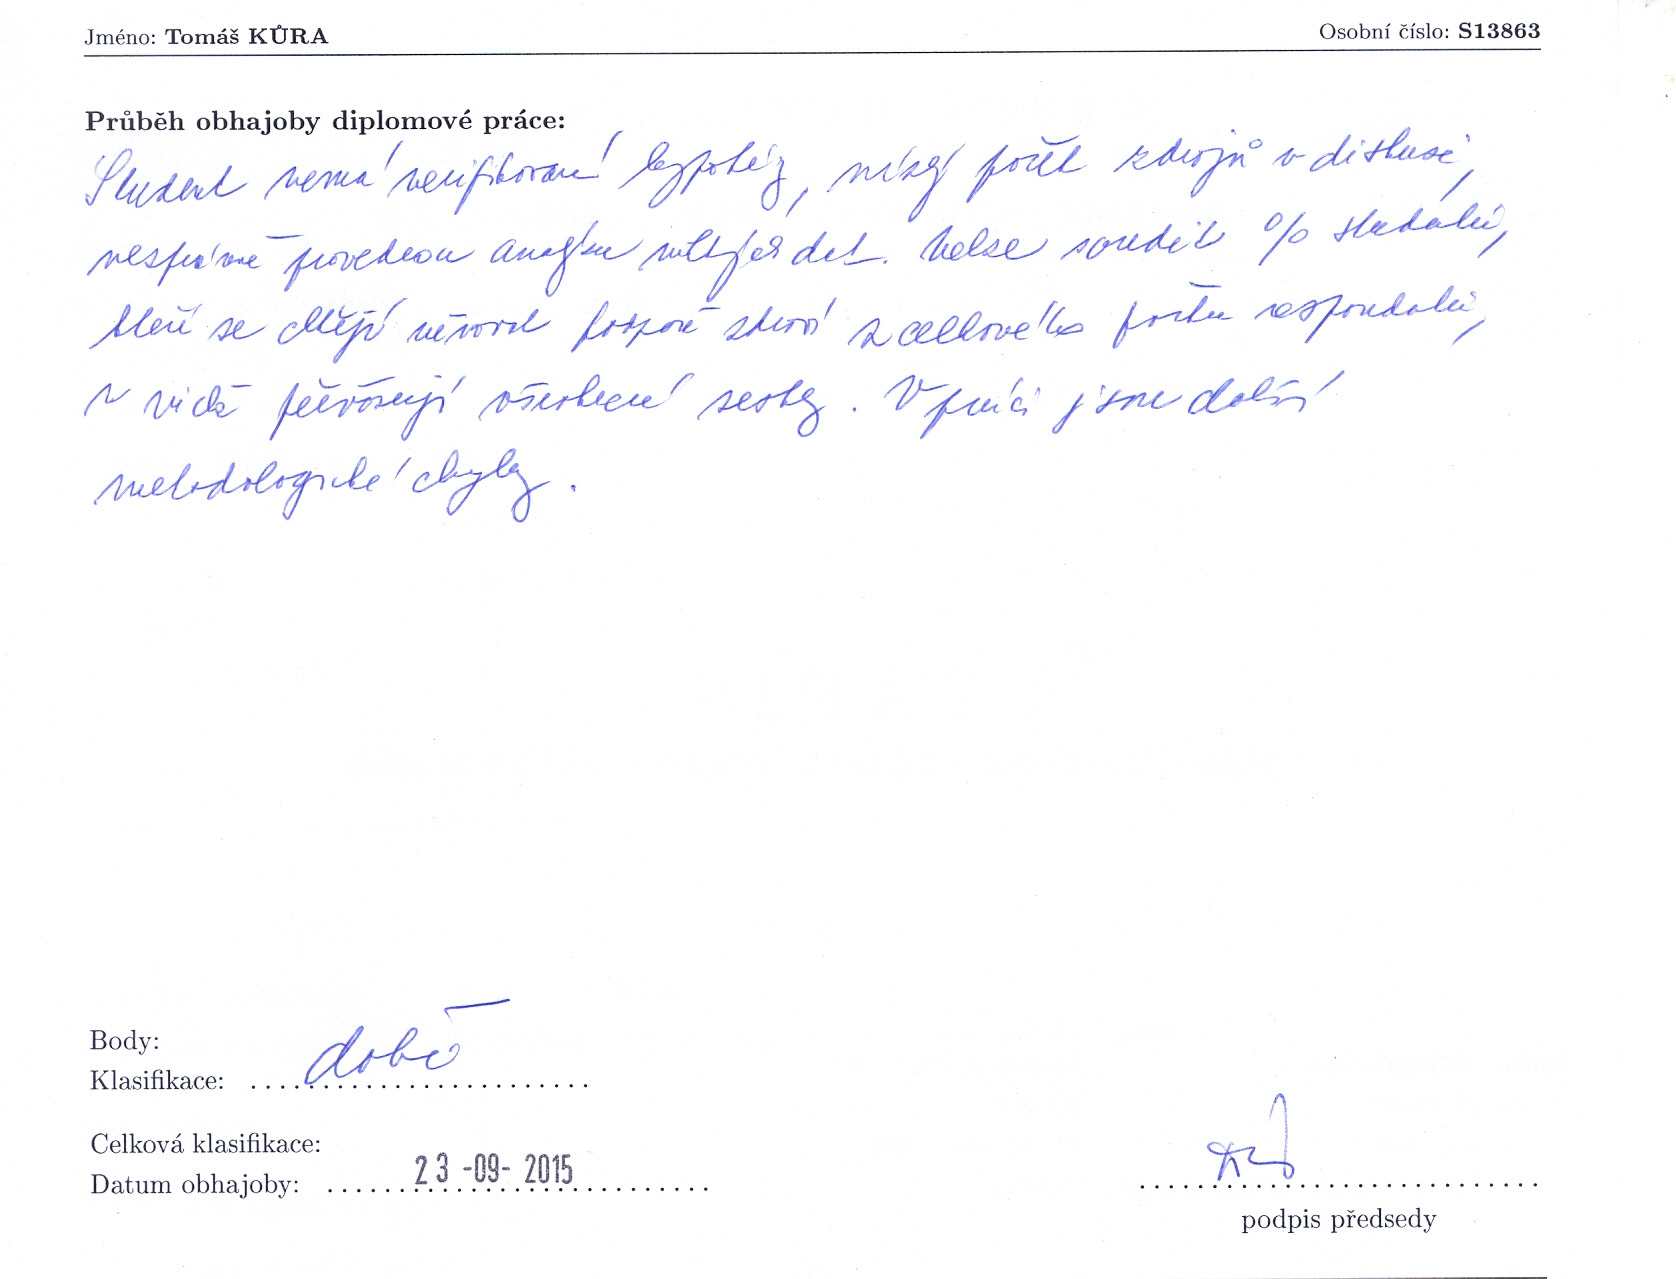 Jméno: Tomáš KŮRA Osobní číslo: S13863
Průběh obhajoby diplomové práce:
Student nemá verifikované hypotézy, nízký počet zdrojů v diskusi,
nesprávně provedenou analýzu dat. Nelze soudit % studentů,
kteří se chtějí věnovat podpoře zdraví z celkového počtu respondentů,
v převažují všeobecné sestry. V práci jsou další
metodologické chyby.
Body:
Klasifikace: dobře
Celková klasifikace:
Datum obhajoby: 23 -09- 2015
podpis předsedy